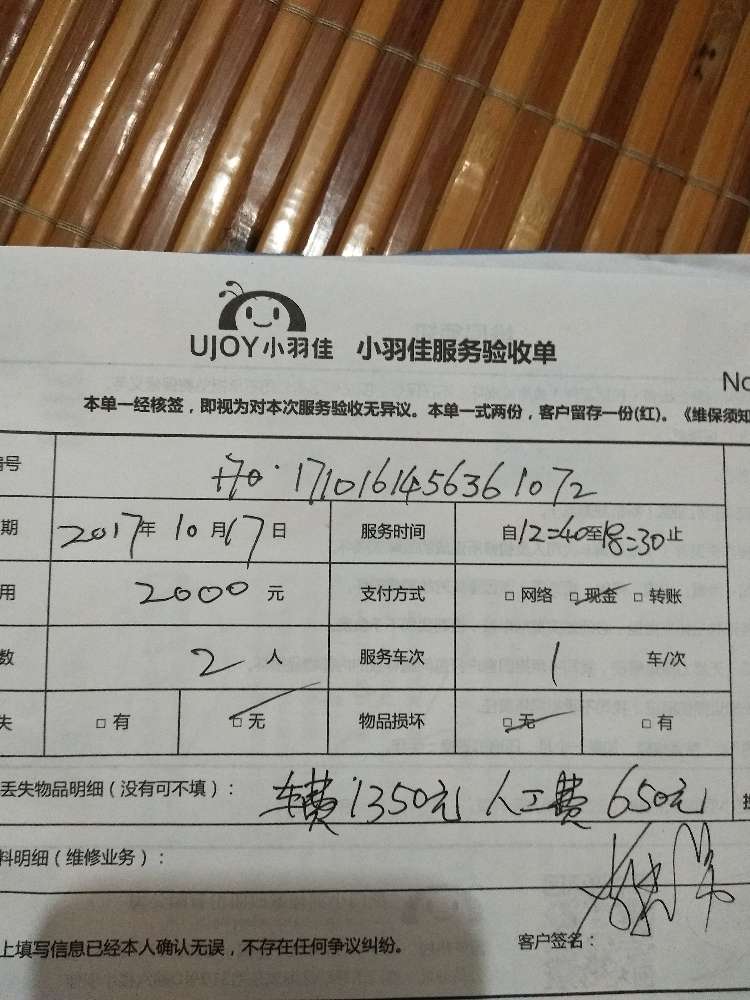 UJOY小羽佳 小羽佳服务验收单
No
本单一经核签，即视为对本次服务验收无异议。本单一式两份，客户留存一份(红)。《维保须知
编号 171016145636 1072
期 2017年 10月17日 服务时间 自12:40至18:30止
用 2000元 支付方式 □网络 □现金 □转账
数 2人 服务车次 1 车/次
失 □有 □无 物品损坏 □无 □有
丢失物品明细（没有可不填）： 车费1350元 人工费 650元
料明细（维修业务）：
上填写信息已经本人确认无误，不存在任何争议纠纷。 客户签名：